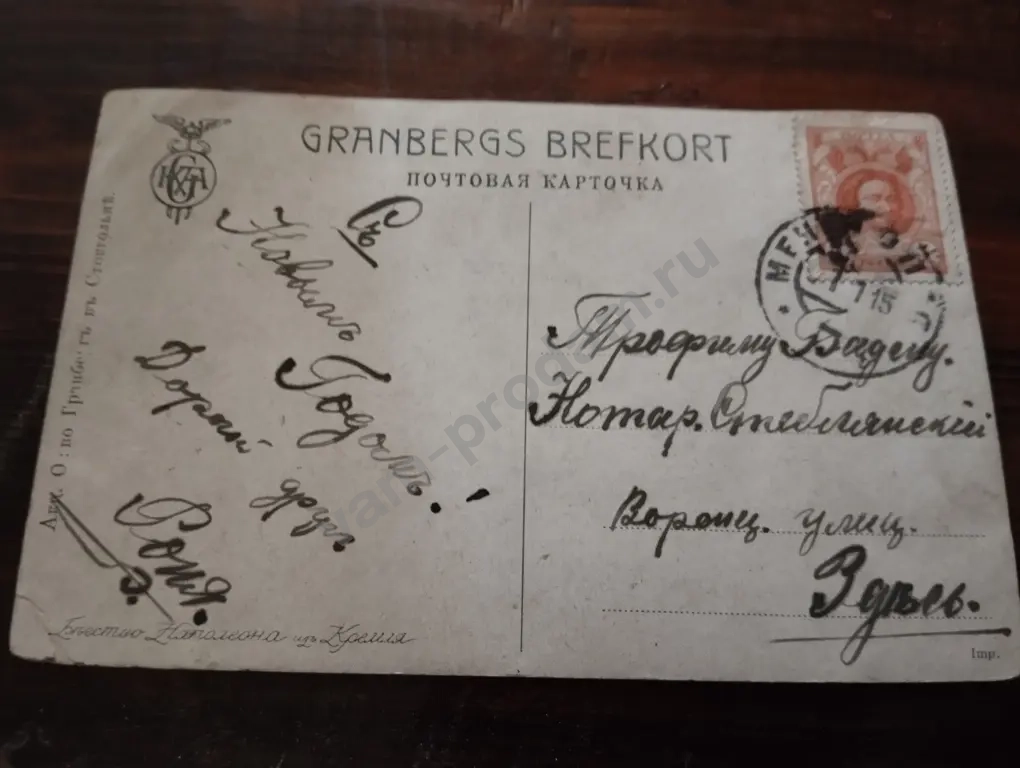 GRANBERGS BREFKORT
ПОЧТОВАЯ КАРТОЧКА
Акц. О-во Гранбергъ въ Стокгольмѣ.
Съ
Новымъ
Годомъ!
Дорогой
другъ
Соня.
Бѣгство Наполеона изъ Кремля
15
Трофиму
Нотар. Стеблянскій
Воронц. улиц.
Здѣсь.
Imp.
vam-prodam.ru